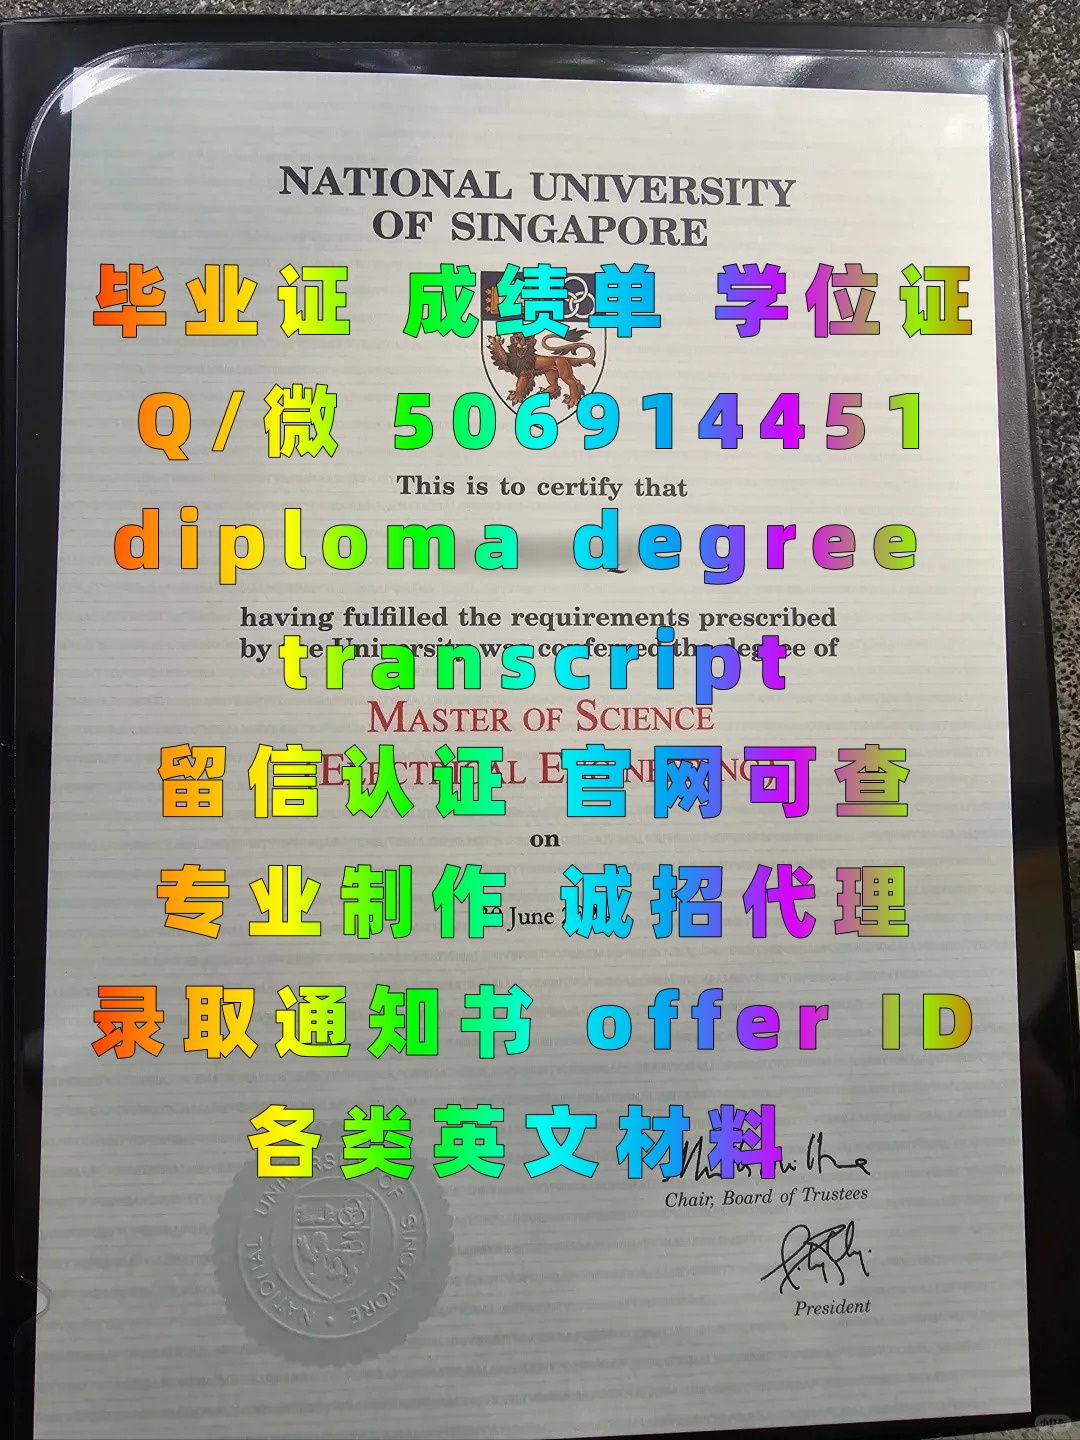 NATIONAL UNIVERSITY
OF SINGAPORE
毕业证 成绩单 学位证
Q/微 506914451
This is to certify that
diploma degree
having fulfilled the requirements prescribed
by the University was conferred the degree of
transcript
MASTER OF SCIENCE
(ELECTRICAL ENGINEERING)
留信认证 官网可查
on
专业制作 诚招代理
June
录取通知书 offer ID
各类英文材料
Chair, Board of Trustees
President
NATIONAL UNIVERSITY OF SINGAPORE
小红书